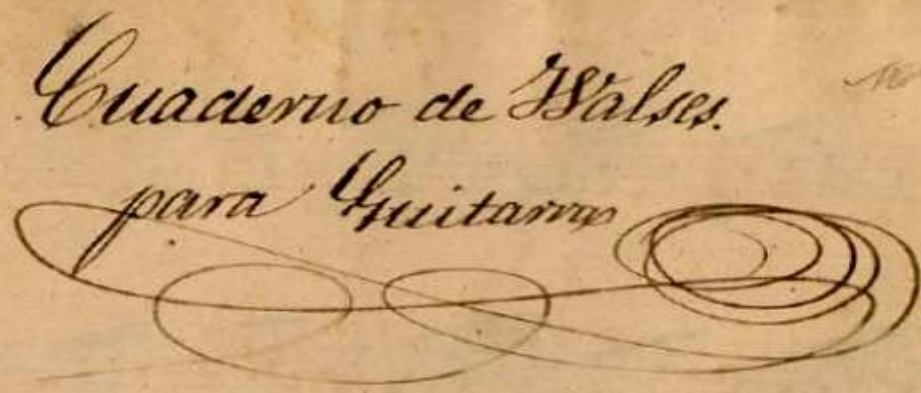 Cuaderno de Walses.
para Guitarra